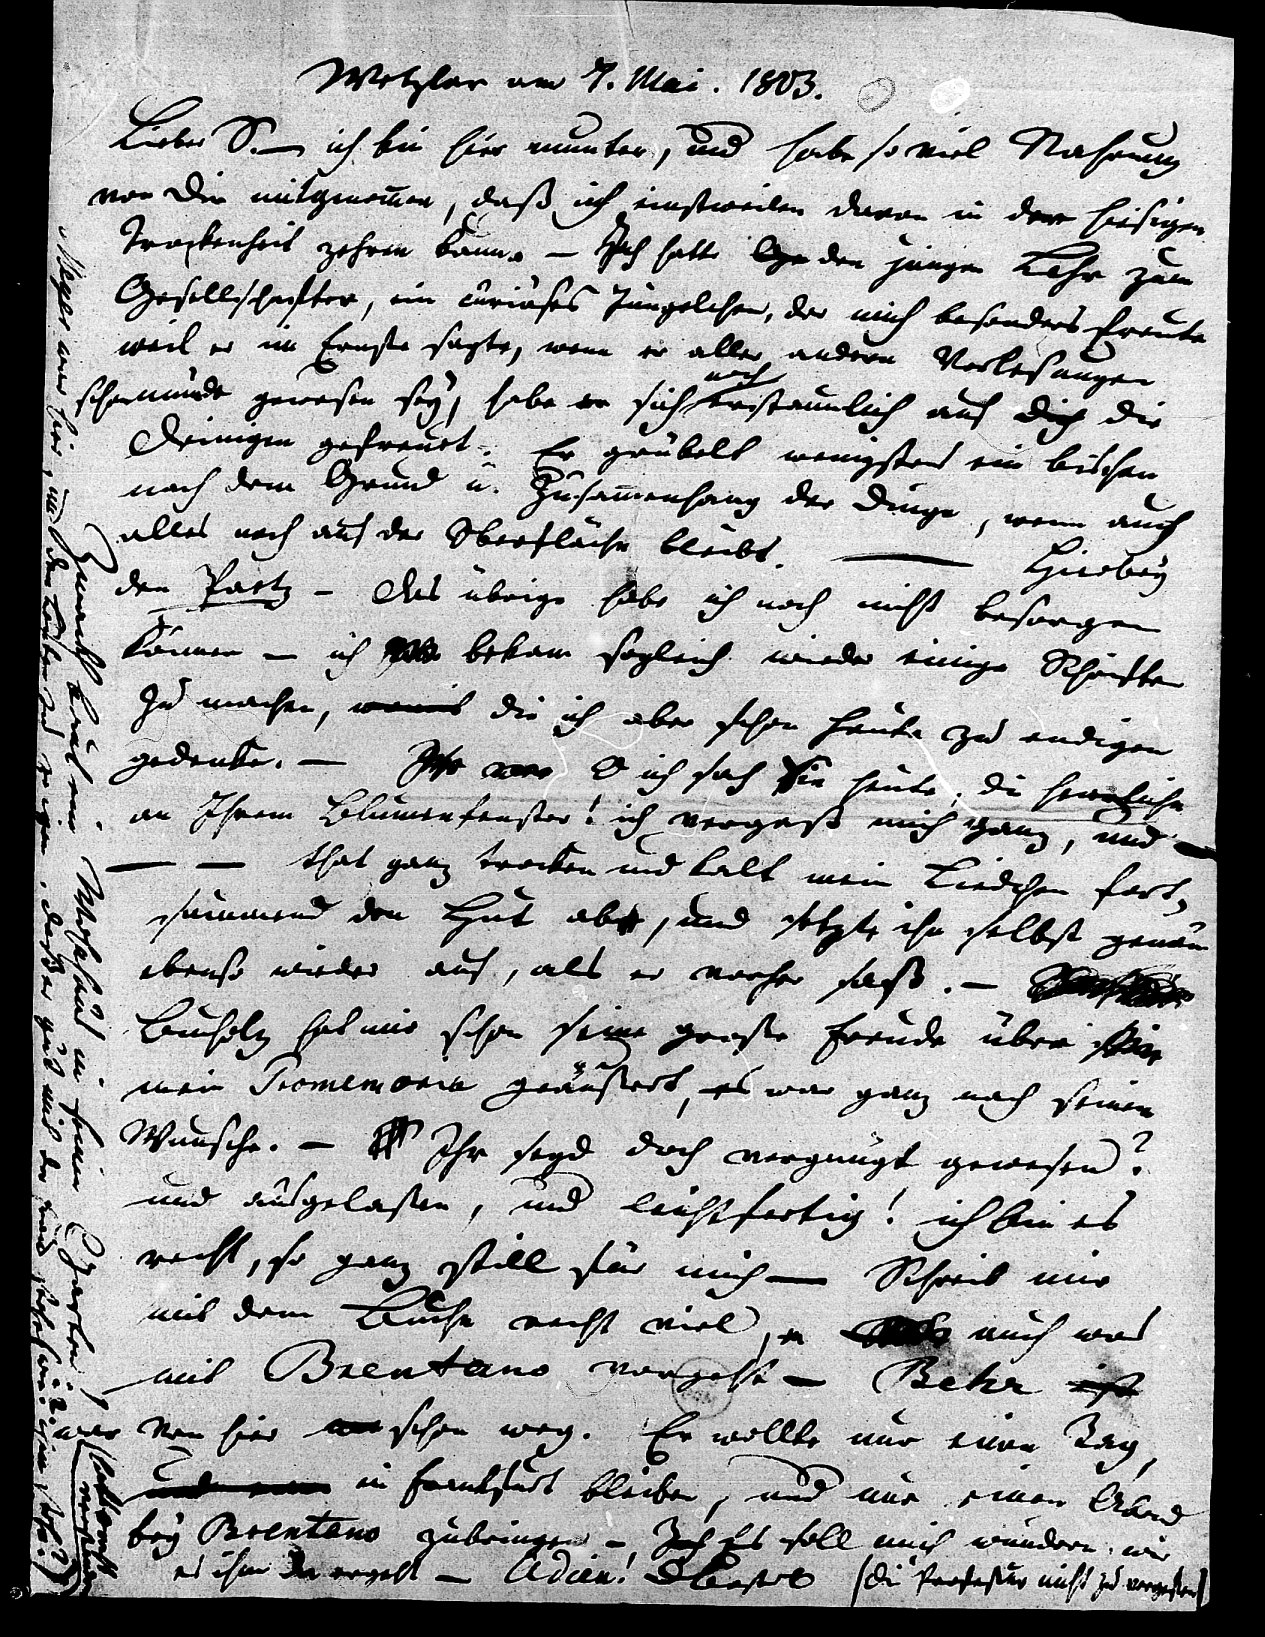 Wetzlar am 7. Mai. 1803.
Lieber S. — ich bin hier munter, und habe so viel Nahrung
von Dir mitgenom̅en, daß ich einstweilen davon in der hiesigen
Trockenheit zehren kann. — Ich hatte den jungen Lehr zum
Gesellschafter, ein curiöses Jüngelchen, der mich besonders freute
weil er im Ernste sagte, wenn er aller andern Vorlesungen
schon müde gewesen sey, habe er sich noch erstaunlich auf die
Deinigen gefreuet. Er grübelt wenigstens ein bischen
nach dem Grund u. Zusam̅enhang der Dinge, wenn auch
alles noch auf der Oberfläche bleibt. — Hierbey
den Paetz — das übrige habe ich noch nicht besorgen
können — ich bekam sogleich wieder einige Schriften
zu machen, die ich aber schon heute zu endigen
gedenke. — O ich sah Sie heute, die herrliche
an Ihrem Blumenfenster! ich vergaß mich ganz, und —
— — that ganz trocken und kalt mein Liedchen fort-
summend den Hut ab, und setzte ihn selbst genau
ebenso wieder auf, als er vorher saß. —
Buchholz hat mir schon seine große Freude über
mein Promemoria geäußert, es war ganz nach seinem
Wunsche. — Ihr seyd doch vergnügt gewesen?
und ausgelaßen, und leichtfertig! ich bin es
recht, so ganz still für mich — Schreib mir
mit dem Buche recht viel, auch was
mit Brentano vorgeht — Behr
von hier schon weg. Er wollte nur einen Tag,
in Frankfurt bleiben, und nur einen Abend
bey Brentano zubringen — Es soll mich wundern, wie
es ihm da ergeht — Adieu! (die Professur nicht zu vergessen)